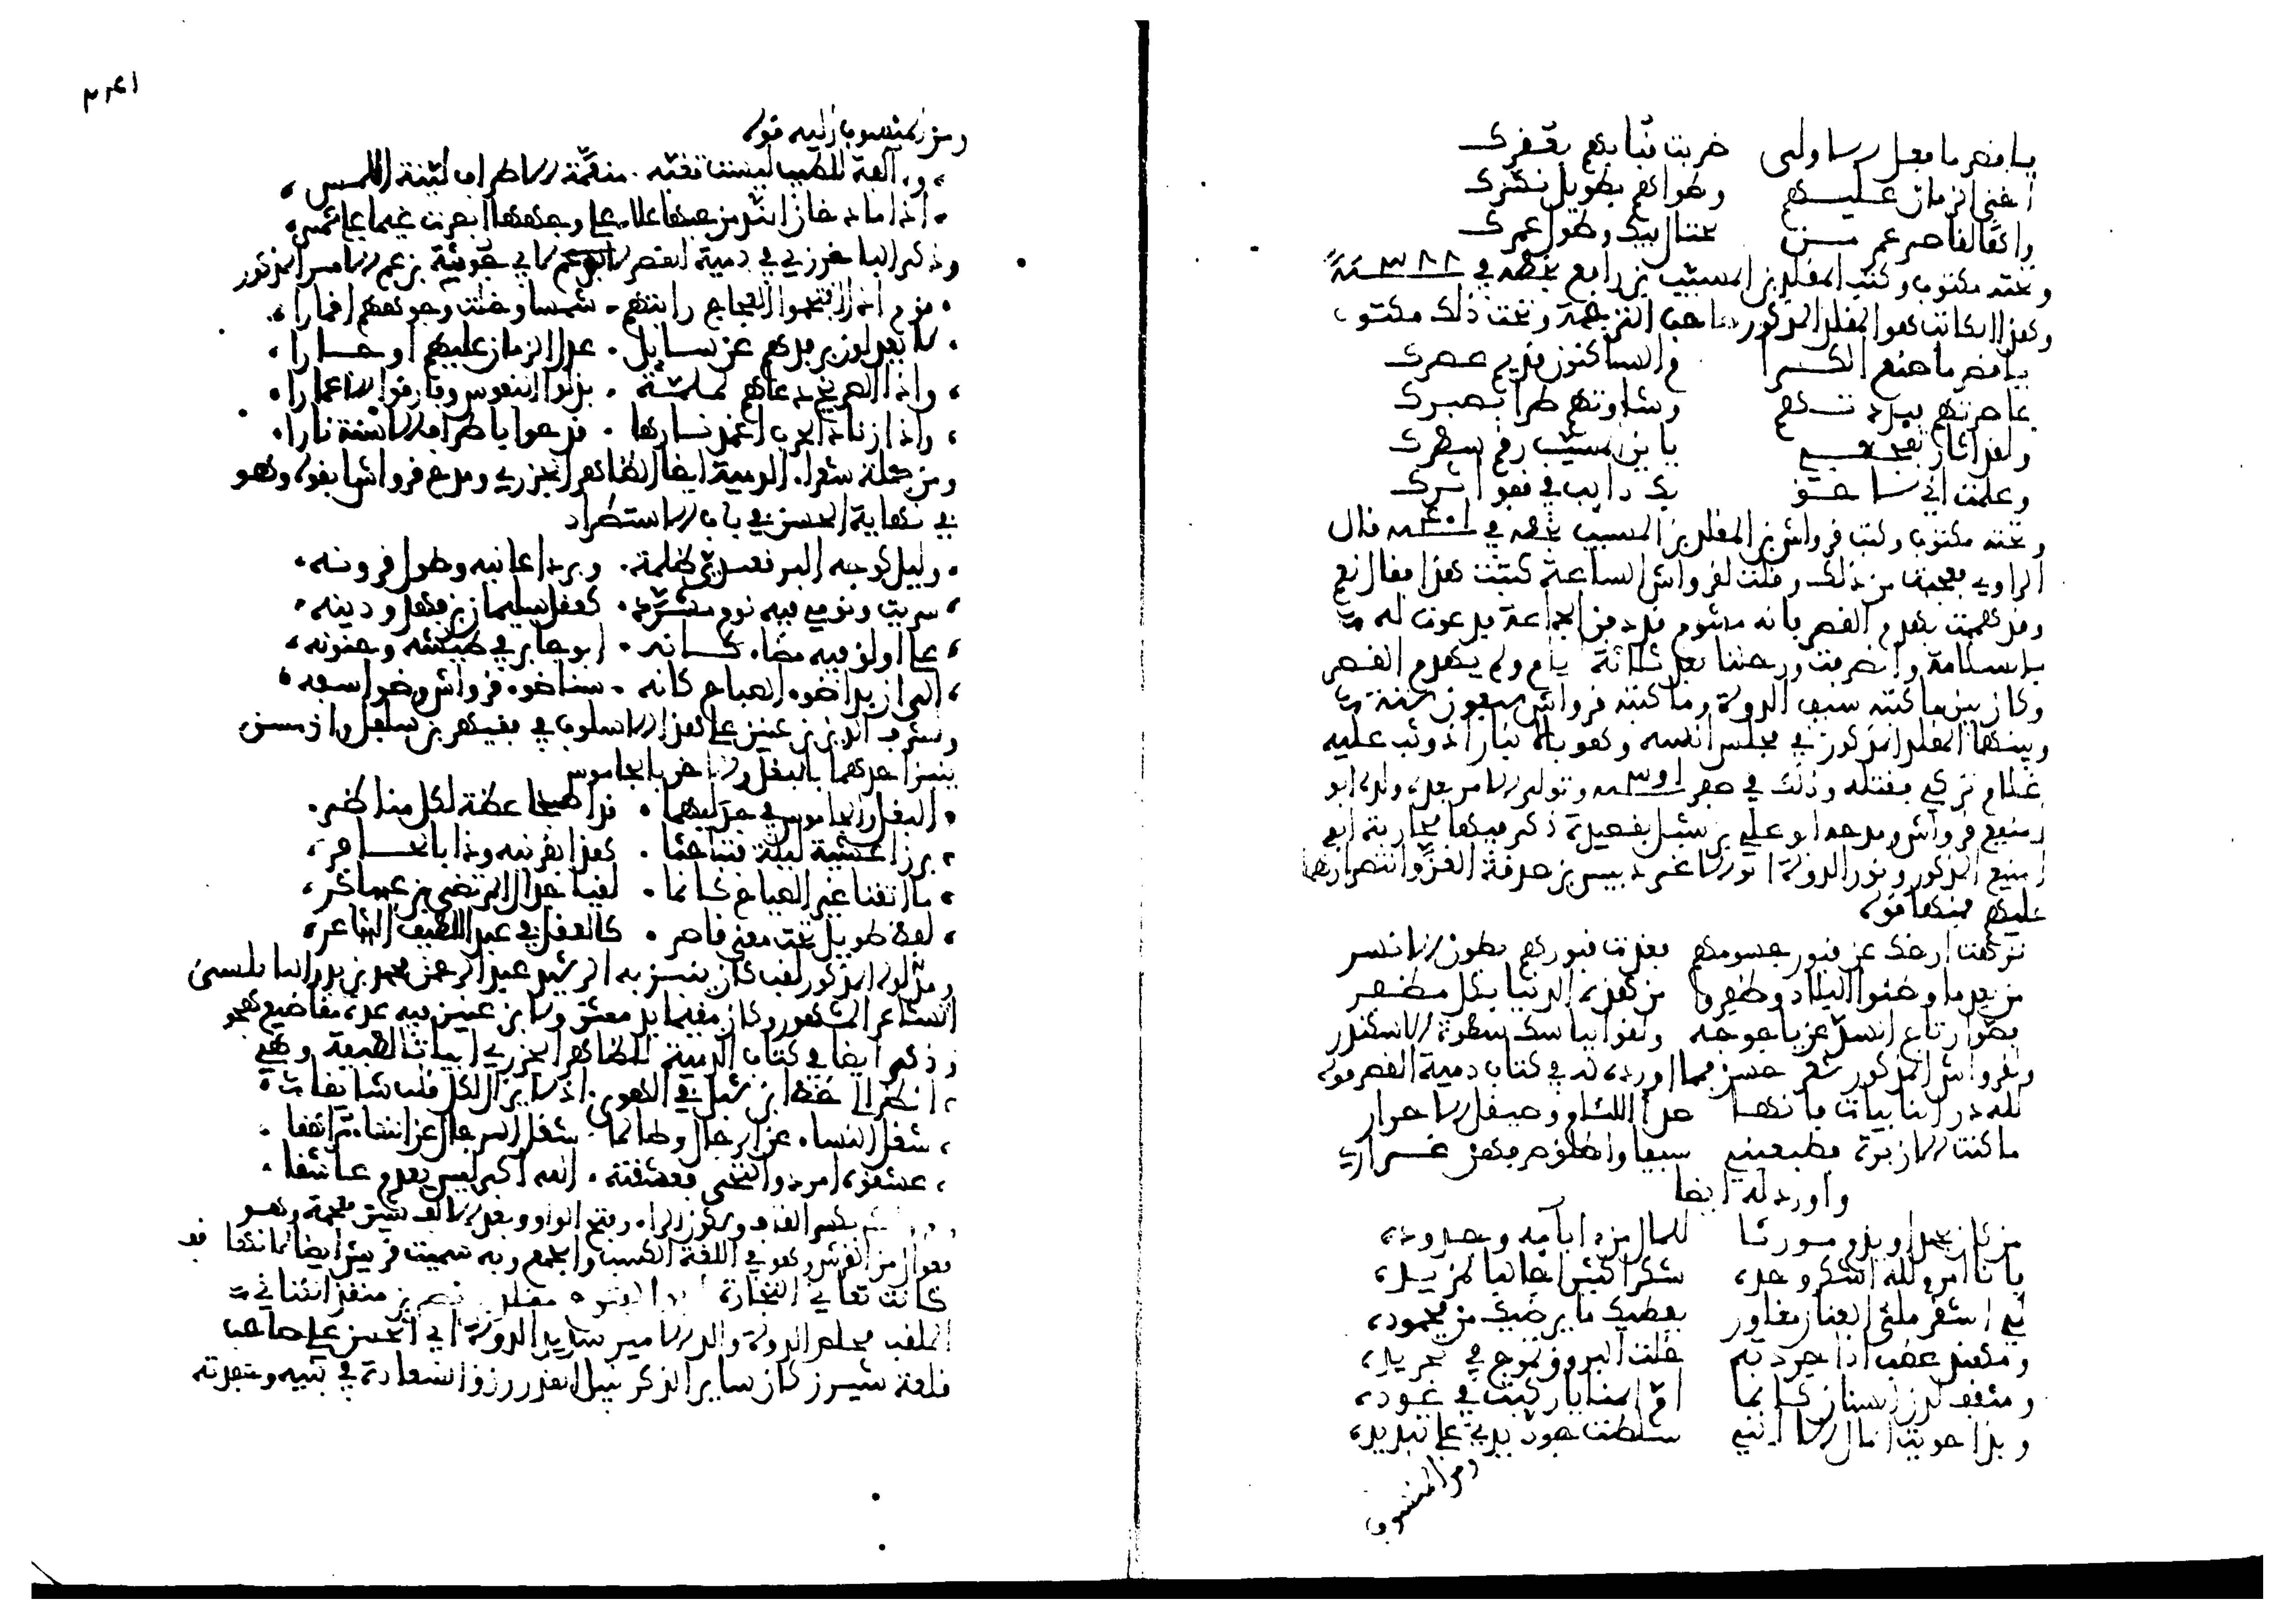 يا قصر ما فعل الاولى ضربت قبابهم بقفرك
اخنى الزمان عليهم وطواهم بطويل نشرك
واها لقاصر عمر من يختال فيك وطول عمرك
وتحته مكتوب وكتب المقلد بن المسيب بن رافع بخطه في ٣٨٨ سنة
وهذا الكاتب هو المقلد المذكور صاحب الترجمة وتحت ذلك مكتوب
يا قصر ما صنع الكرام الساكنون قديم عصرك
عاصرتهم فبذذتهم وشاوتهم طرا بصبرك
ولقد اثار تفجعي يا بن المسيب رقم سطرك
وعلمت اني لاحق بك دائب في قفو اثرك
وتحته مكتوب وكتب قرواش بن المقلد بن المسيب بخطه في ٤٠١ سنة قال
الراوي فعجبت من ذلك وقلت لقرواش الساعة كتبت هذا فقال نعم
وقد هممت بهدم القصر فانه مشوم قد دفن الجماعة فدعوت له
بالسلامة وانصرفت ورحلنا بعد ثلاثة ايام ولم يهدم القصر
وكان بين ما كتبه سيف الدولة وما كتبه قرواش سبعون سنة
وبينما المقلد المذكور في مجلس انسه وهو بالانبار اذ وثب عليه
غلام تركي فقتله وذلك في صفر ٣٩١ سنة وتولى الامر بعده ولده ابو
المنيع قرواش ومدحه ابو علي بن شبل بقصيدة ذكر فيها محاربة ابي
المنيع المذكور ونور الدولة ابو الاغر دبيس بن صدقة الغز وانتصارهما
عليهم فمنها قوله
نزهت ارضك عن قبور جسومهم فغدت قبورهم بطون الانسر
من بعد ما وطئوا البلاد وظفروا من هذه الدنيا بكل مظفر
فضوا رتاج السد عن ياجوجه ولقوا ببأسك سطوة الاسكندر
ولقرواش المذكور شعر حسن فمما اورده له في كتاب دمية القصر قوله
لله در النايبات فانها صدأ اللئام وصيقل الاحرار
ما كنت الا زبرة فطبعنني سيفا واطلق صرفهن غراري
واورد له ايضا
من كان يحمد او يذم مورثا للمال من ابائه وجدوده
فانا امرؤ لله اشكر وحده شكرا كثيرا جالبا لمزيده
لي اشقر ملئ العنان مغاور يعطيك ما يرضيك من مجهوده
ومهند عضب اذا جردته خلت البروق تموج في تجريده
ومثقف لدن السنان كانما ام المنايا ركبت في عوده
وبذا حويت المال الا انني سلطت جود يدي على تبديده
ومن المنسوب
ومن المنسوب اليه قوله
وآلفة للطيب ليست تغبه منعمة الاطراف لينة اللمس
اذا ما دخان الند من جيبها علا على وجهها ابصرت غيما على شمس
وذكر الباخرزي في دمية القصر لابي جوثة بن عم الامير المذكور
قوم اذا اقتحموا العجاج رايتهم شمسا وخلت وجوههم اقمارا
لا يعدلون برفدهم عن سايل عدل الزمان عليهم او جارا
واذا الصريخ دعاهم لملمة بذلوا النفوس وفارقوا الاعمارا
واذا زناد الحرب اخمد نارها قدحوا باطراف الاسنة نارا
ومن جملة شعراء الدمية ايضا الطاهر الجزري ومدح قرواشا بقوله وهو
في نهاية الحسن في باب الاستطراد
وليل كوجه البرقعيدي ظلمة وبرد اغانيه وطول قرونه
سريت ونومي فيه نوم مشرد كعقل سليمان بن فهد ودينه
على اولق فيه مضاء كانه ابو جابر في طيشه وجنونه
الى ان بدا ضوء الصباح كانه سنا ضوء قرواش وضوء جبينه
وشرف الدين بن عنين على هذا الاسلوب في فقيهين
ينبز احدهما بالبغل والاخر بالجاموس
البغل والجاموس في جدليهما قد اصبحا عظة لكل مناظر
برزا عشية ليلة فتناحيا هذا بقرنيه وذا بالحافر
ما اتقنا غير الصياح كانما لقيا جدال المرتضى بن عساكر
لفظ طويل تحت معنى قاصر كالعقل في عبد اللطيف الناظر
ومدلويه المذكور لقب كان ينبز به الرشيد عبد الرحمن محمد بن بدر النابلسي
الشاعر المشهور وكان مقيما بدمشق ولابن عنين فيه عدة مقاطيع هجو
وذكر ايضا في كتاب الدمية للطاهر الجزري ابياتا لطيفة وهي
انظر الى حظ ابن شبل في الهوى اذ لا يزال لكل قلب شايقا
شغل النساء عن الرجال وطالما شغل الرجال عن النساء مراهقا
عشقوه امرد والتحى فعشقنه الله اكبر ليس يعدم عاشقا
بكسر القاف وسكون الراء وفتح الواو وبعد الالف شين معجمة وهو
فعوال من القرش وهو في اللغة الكسب والجمع وبه سميت قريش ايضا لانها
كانت تعاني التجارة مقلد بن نصر بن منقذ الكناني
الملقب مخلص الدولة والد الامير سديد الدولة ابي الحسن علي صاحب
قلعة شيزر كان ساير الذكر نبيل القدر رزق السعادة في بنيه وحفدته